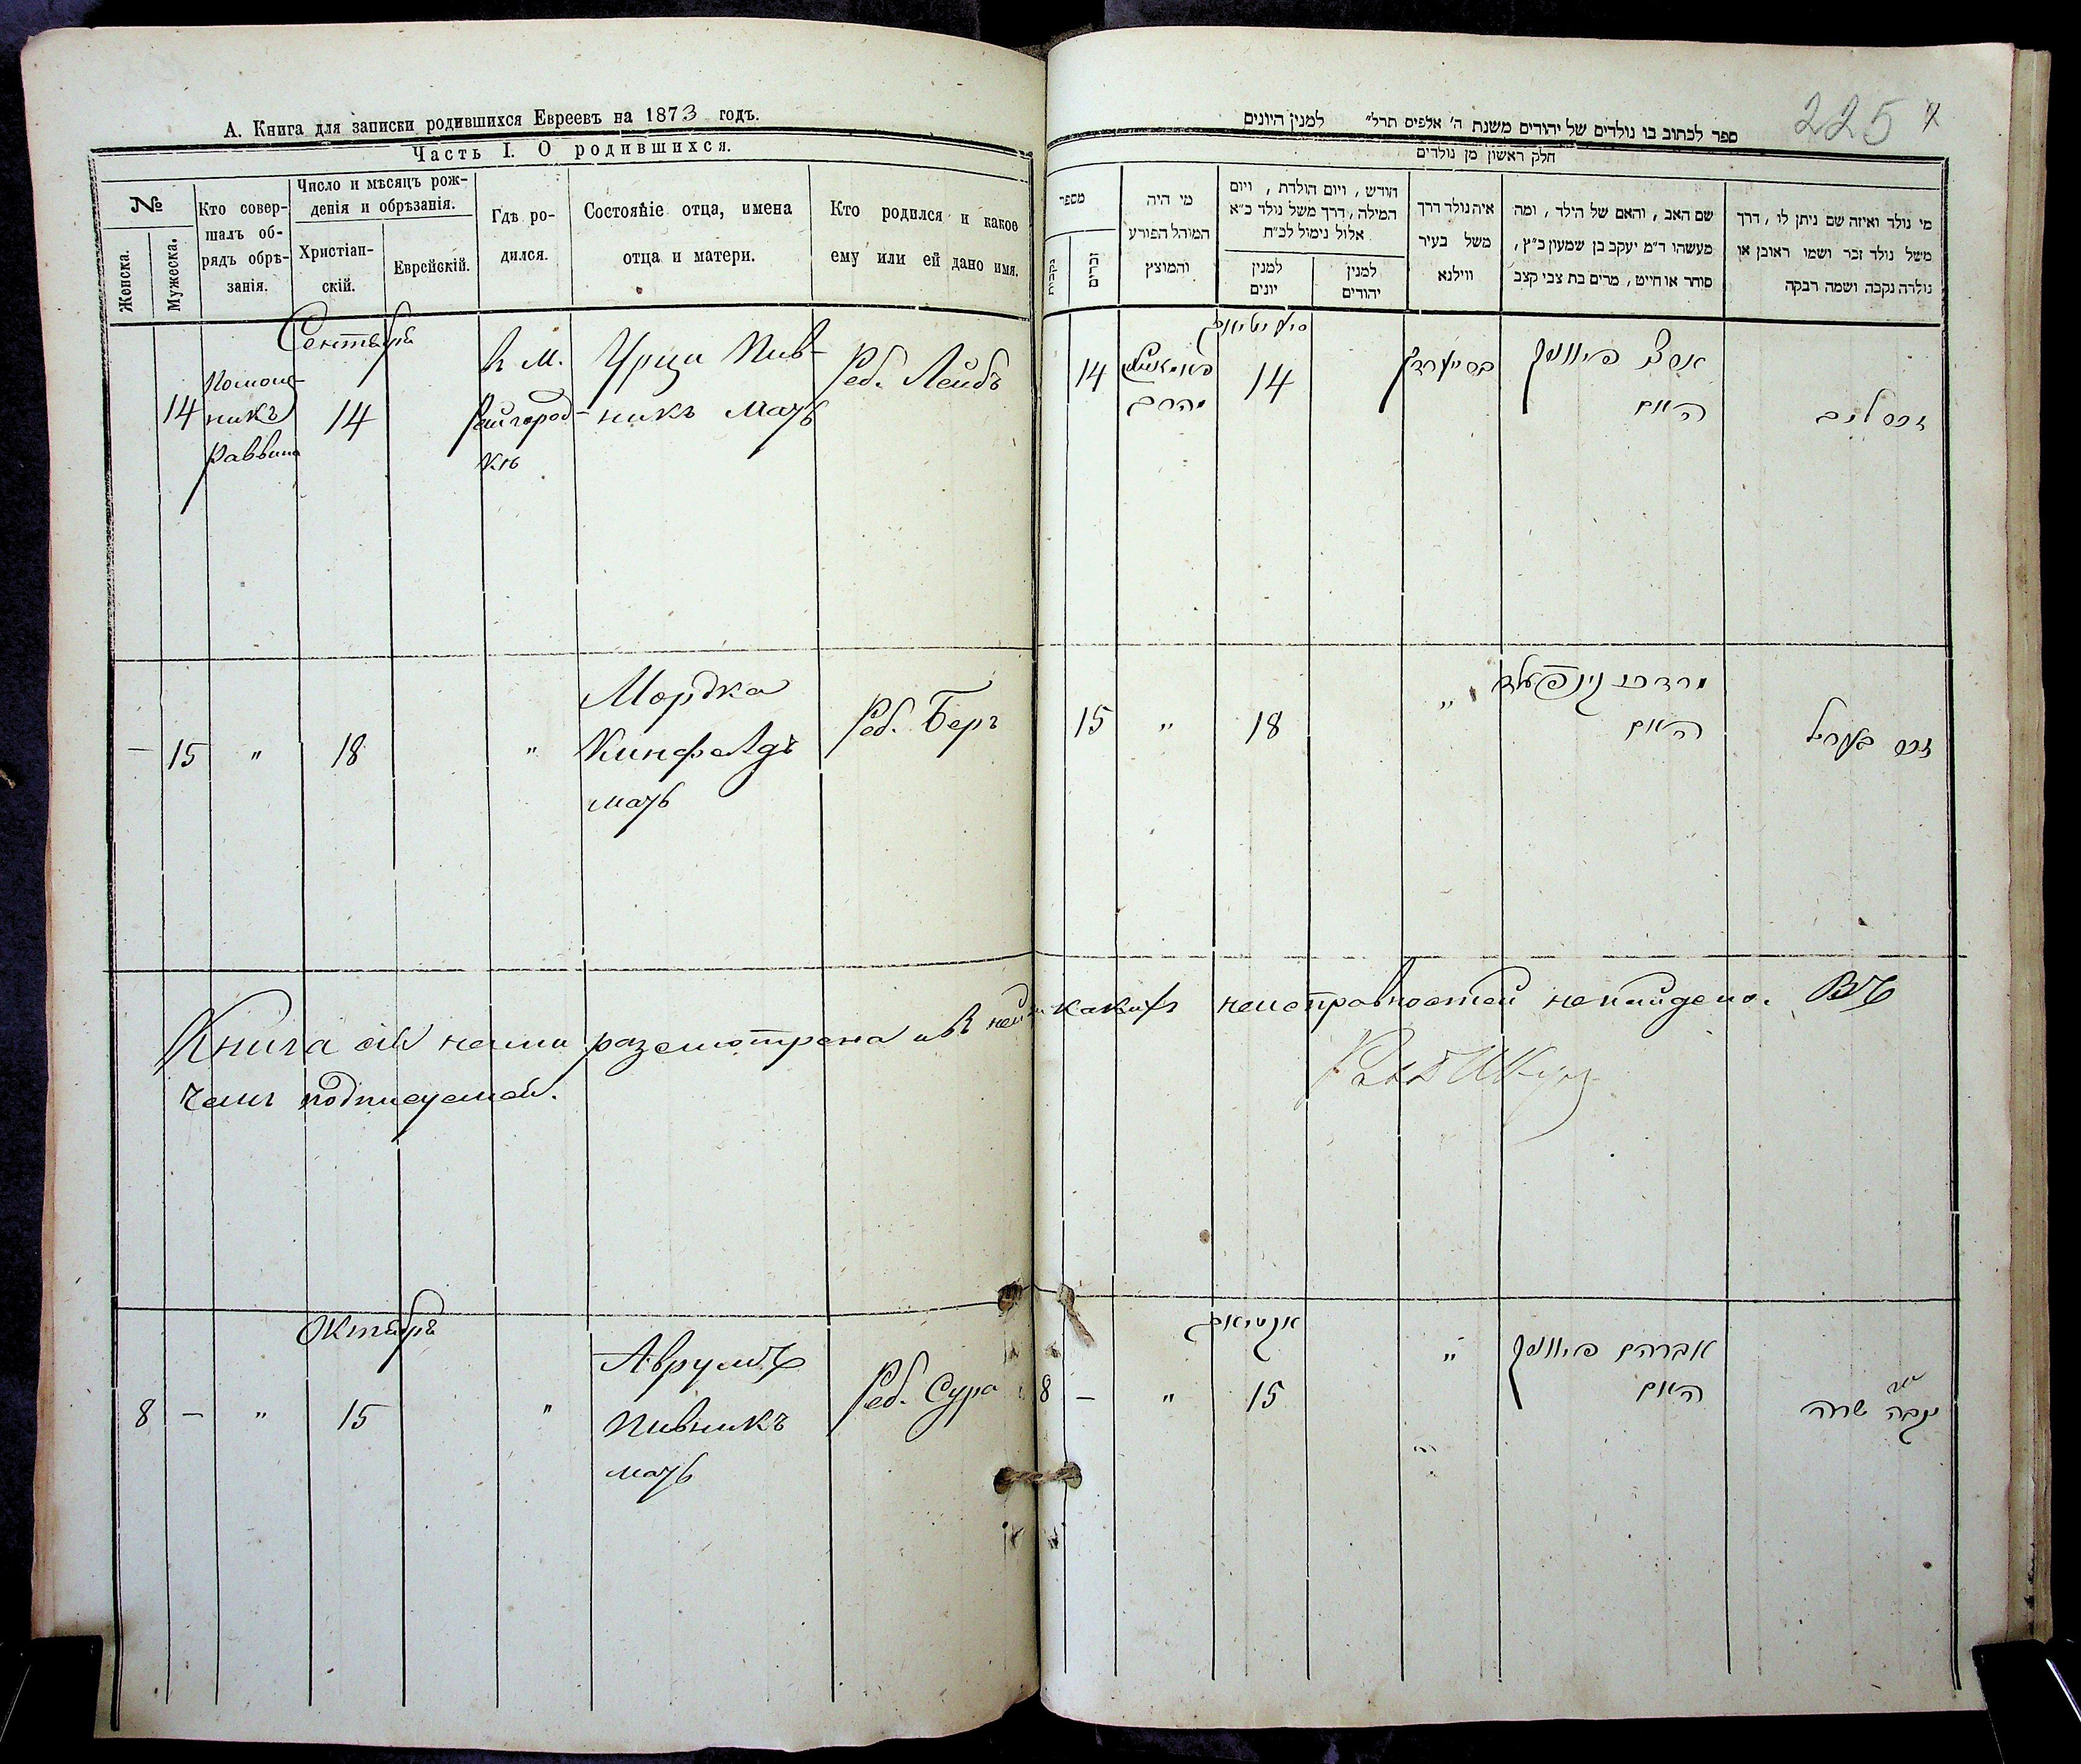 А. Книга для записки родившихся Евреевъ на 1873 годъ.
Часть I. О родившихся.
№
Женска.
Мужеска.
Кто совер-
шалъ об-
рядъ обрѣ-
занія.
Число и мѣсяцъ рож-
денія и обрѣзанія.
Христіан-
скій.
Еврейскій.
Гдѣ ро-
дился.
Состояніе отца, имена
отца и матери.
Кто родился и какое
ему или ей дано имя.
Сентября
14
Помощ-
никъ
Раввина
14
в м.
Райгород-
кѣ
Пив-
никъ мать
Реб. Лейбъ
— 15 " 18 "
Мордка
Кинфелдъ
мать
Реб. Беръ
Книга сія нами разсмотрена и в ней ни какихъ неисправностей ненайдено. В
чемъ подписуемся.
Октября
8 — " 15 "
Аврумъ
Пивникъ
мать
Реб. Сура
225
7
ספר לכתוב בו נולדים של יהודים משנת ה' אלפים תרל" למנין היונים
חלק ראשון מן נולדים
מספר
נקבות
זכרים
מי היה
המוהל הפורע
והמוצץ
חודש, ויום הולדת, ויום
המילה, דרך משל נולד כ"א
אלול נימול לכ"ח
למנין
יונים
למנין
יהודים
איה נולד דרך
משל בעיר
ווילנא
שם האב, והאם של הילד, ומה
מעשהו ד"מ יעקב בן שמעון כ"ץ,
סוחר או חייט, מרים בת צבי קצב
מי נולד ואיזה שם ניתן לו, דרך
משל נולד זכר ושמו ראובן או
נולדה נקבה ושמה רבקה
14
14
פיווניק
האם
זכר ליב
15 " 18 "
מרדכי קינפעלד
האם
זכר בער
8 — " 15 "
אברהם פיווניק
האם
נקבה שרה